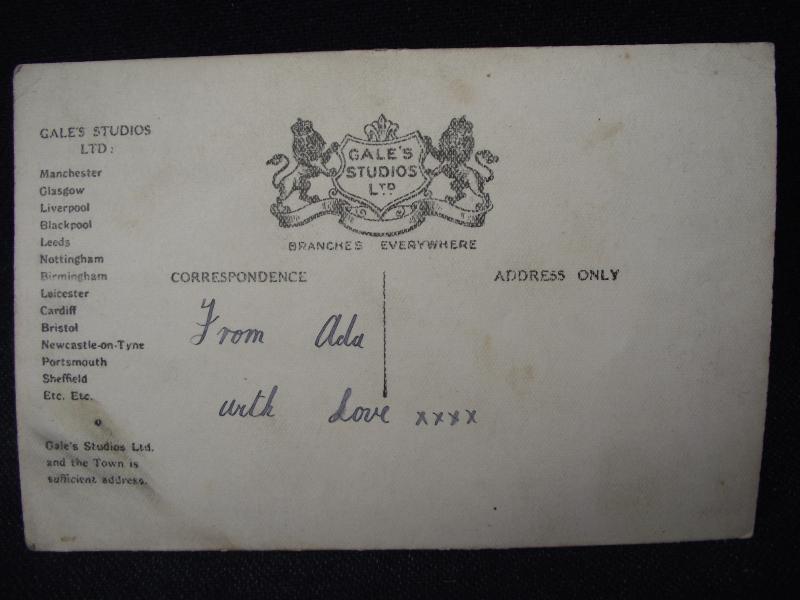 GALE'S STUDIOS
LTD:
Manchester
Glasgow
Liverpool
Blackpool
Leeds
Nottingham
Birmingham
Leicester
Cardiff
Bristol
Newcastle-on-Tyne
Portsmouth
Sheffield
Etc. Etc.
Gale's Studios Ltd.
and the Town is
sufficient address.
GALE'S
STUDIOS
LTD
BRANCHES EVERYWHERE
CORRESPONDENCE
ADDRESS ONLY
From Ada
with Love xxxx